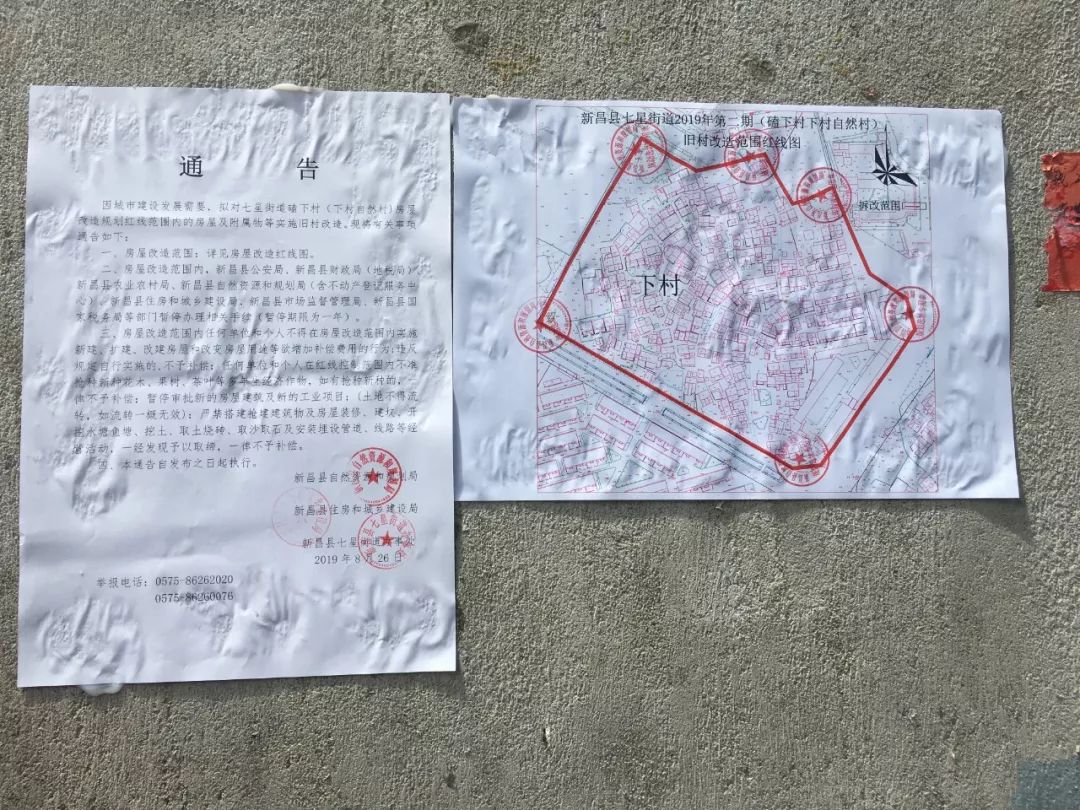 通 告
因城市建设发展需要，拟对七星街道磕下村（下村自然村）房屋
改造规划红线范围内的房屋及附属物等实施旧村改造。现将有关事项
通告如下：
一、房屋改造范围：详见房屋改造红线图。
二、房屋改造范围内，新昌县公安局、新昌县财政局（地税局）
新昌县农业农村局、新昌县自然资源和规划局（含不动产登记服务中
心）、新昌县住房和城乡建设局、新昌县市场监督管理局、新昌县国
家税务局等部门暂停办理相关手续（暂停期限为一年）。
三、房屋改造范围内任何单位和个人不得在房屋改造范围内实施
新建、扩建、改建房屋和改变房屋用途等欲增加补偿费用的行为;违反
规定自行实施的,不予补偿；任何单位和个人在红线控制范围内不准
抢种新种花木、果树、茶叶等多年生经济作物，如有抢种新种的，一
律不予补偿；暂停审批新的房屋建筑及新的工业项目；（土地不得流
转，如流转一概无效）；严禁搭建抢建建筑物及房屋装修、建坟、开
挖水塘鱼塘、挖土、取土烧砖、取沙取石及安装埋设管道、线路等经
营活动，一经发现予以取缔，一律不予补偿。
四、本通告自发布之日起执行。
新昌县自然资源和规划局
新昌县住房和城乡建设局
新昌县七星街道办事处
2019年8月26日
举报电话：0575-86262020
0575-86260076
新昌县七星街道2019年第二期（磕下村下村自然村）
旧村改造范围红线图
拆改范围
下村